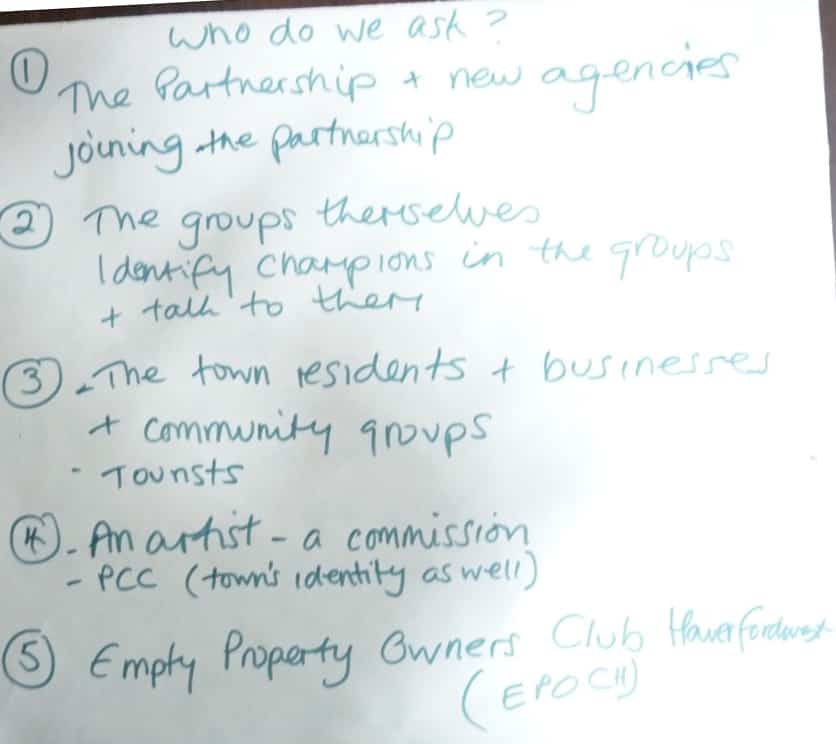 Who do we ask?
① The Partnership + new agencies
joining the partnership
② The groups themselves
Identify Champions in the groups
+ talk to them
③ - The town residents + businesses
+ community groups
- Tourists
④ - An artist - a commission
- PCC (town's identity as well)
⑤ Empty Property Owners Club Haverfordwest
(EPOCH)